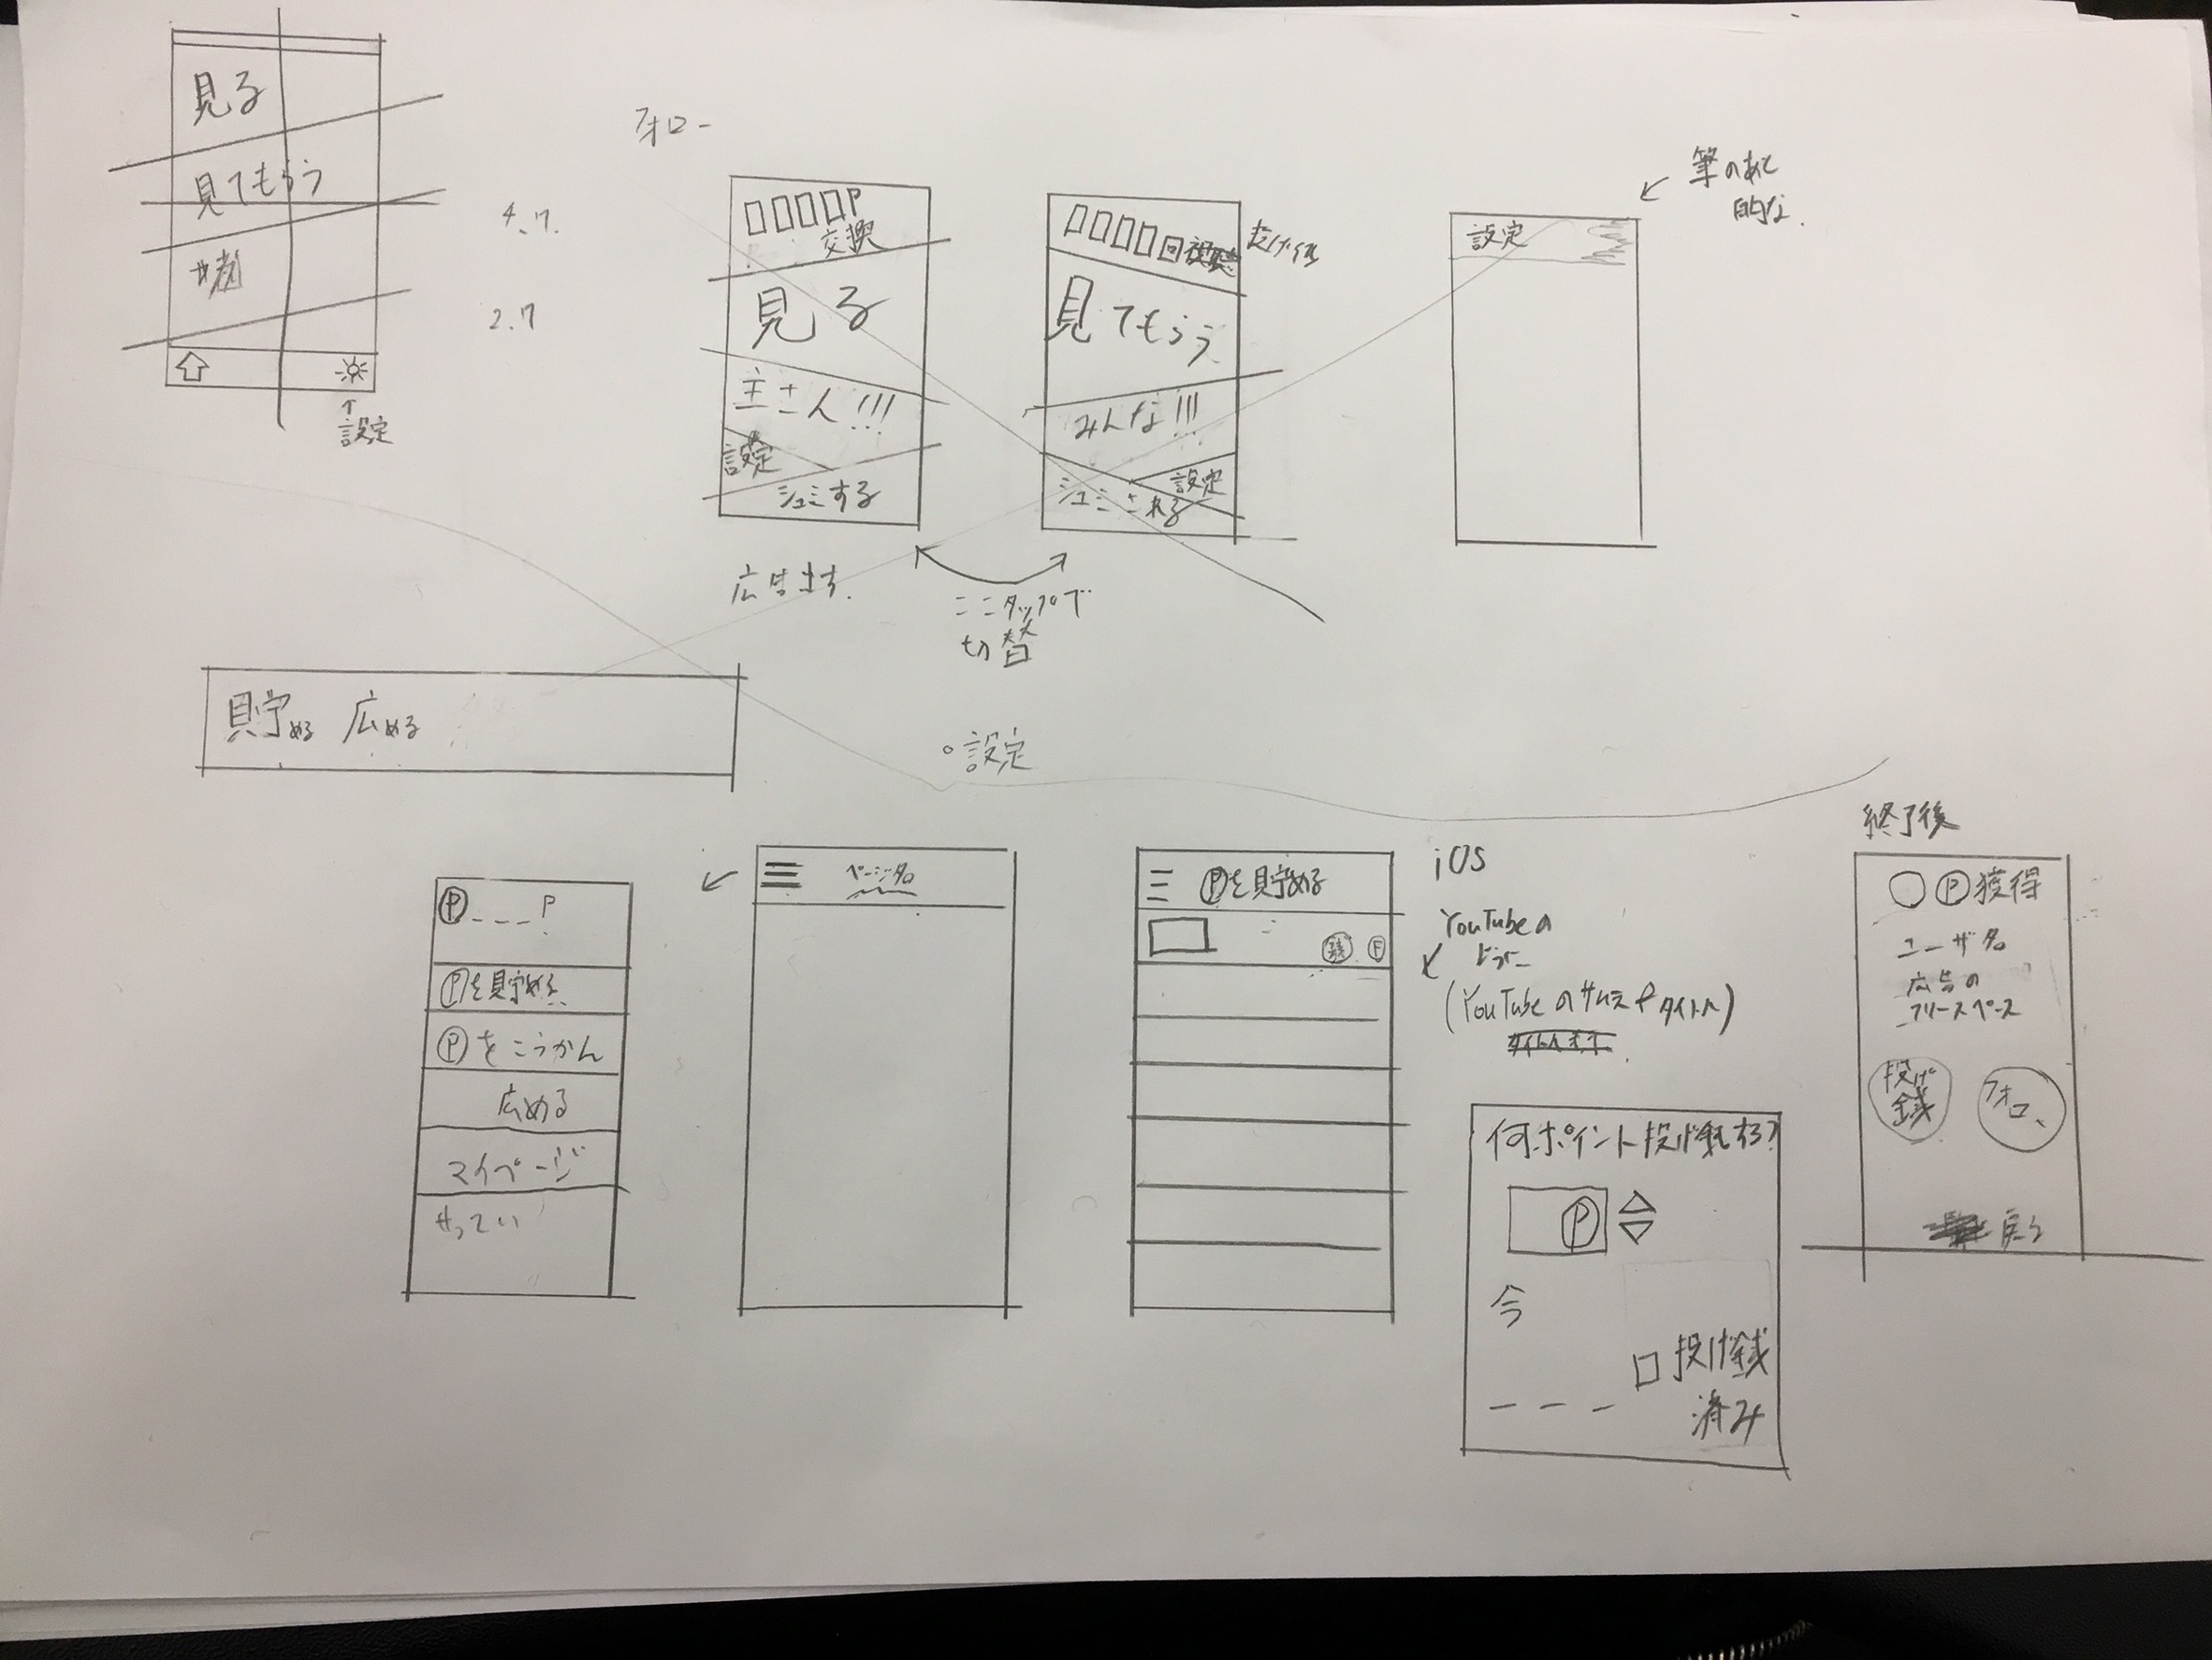 見る
見てもらう
設定
フォロー
P
交換
見る
主さん!!!
設定
シュミする
回視聴
見てもらう
みんな!!!
設定
シュミされる
設定
筆のあと
的な.
広告出す.
ここタップで
切替
貯める 広める
。設定
Ⓟ___P
Ⓟを貯める
Ⓟをこうかん
広める
マイページ
せってい
ページ名
Ⓟを貯める
銭 F
iOS
YouTubeの
ように
(YouTubeのサムネやタイトル)
何ポイント投げ銭する?
Ⓟ
今
投げ銭
済み
終了後
○Ⓟ獲得
ユーザ名
広告の
フリースペース
投げ
銭
フォロー
戻る